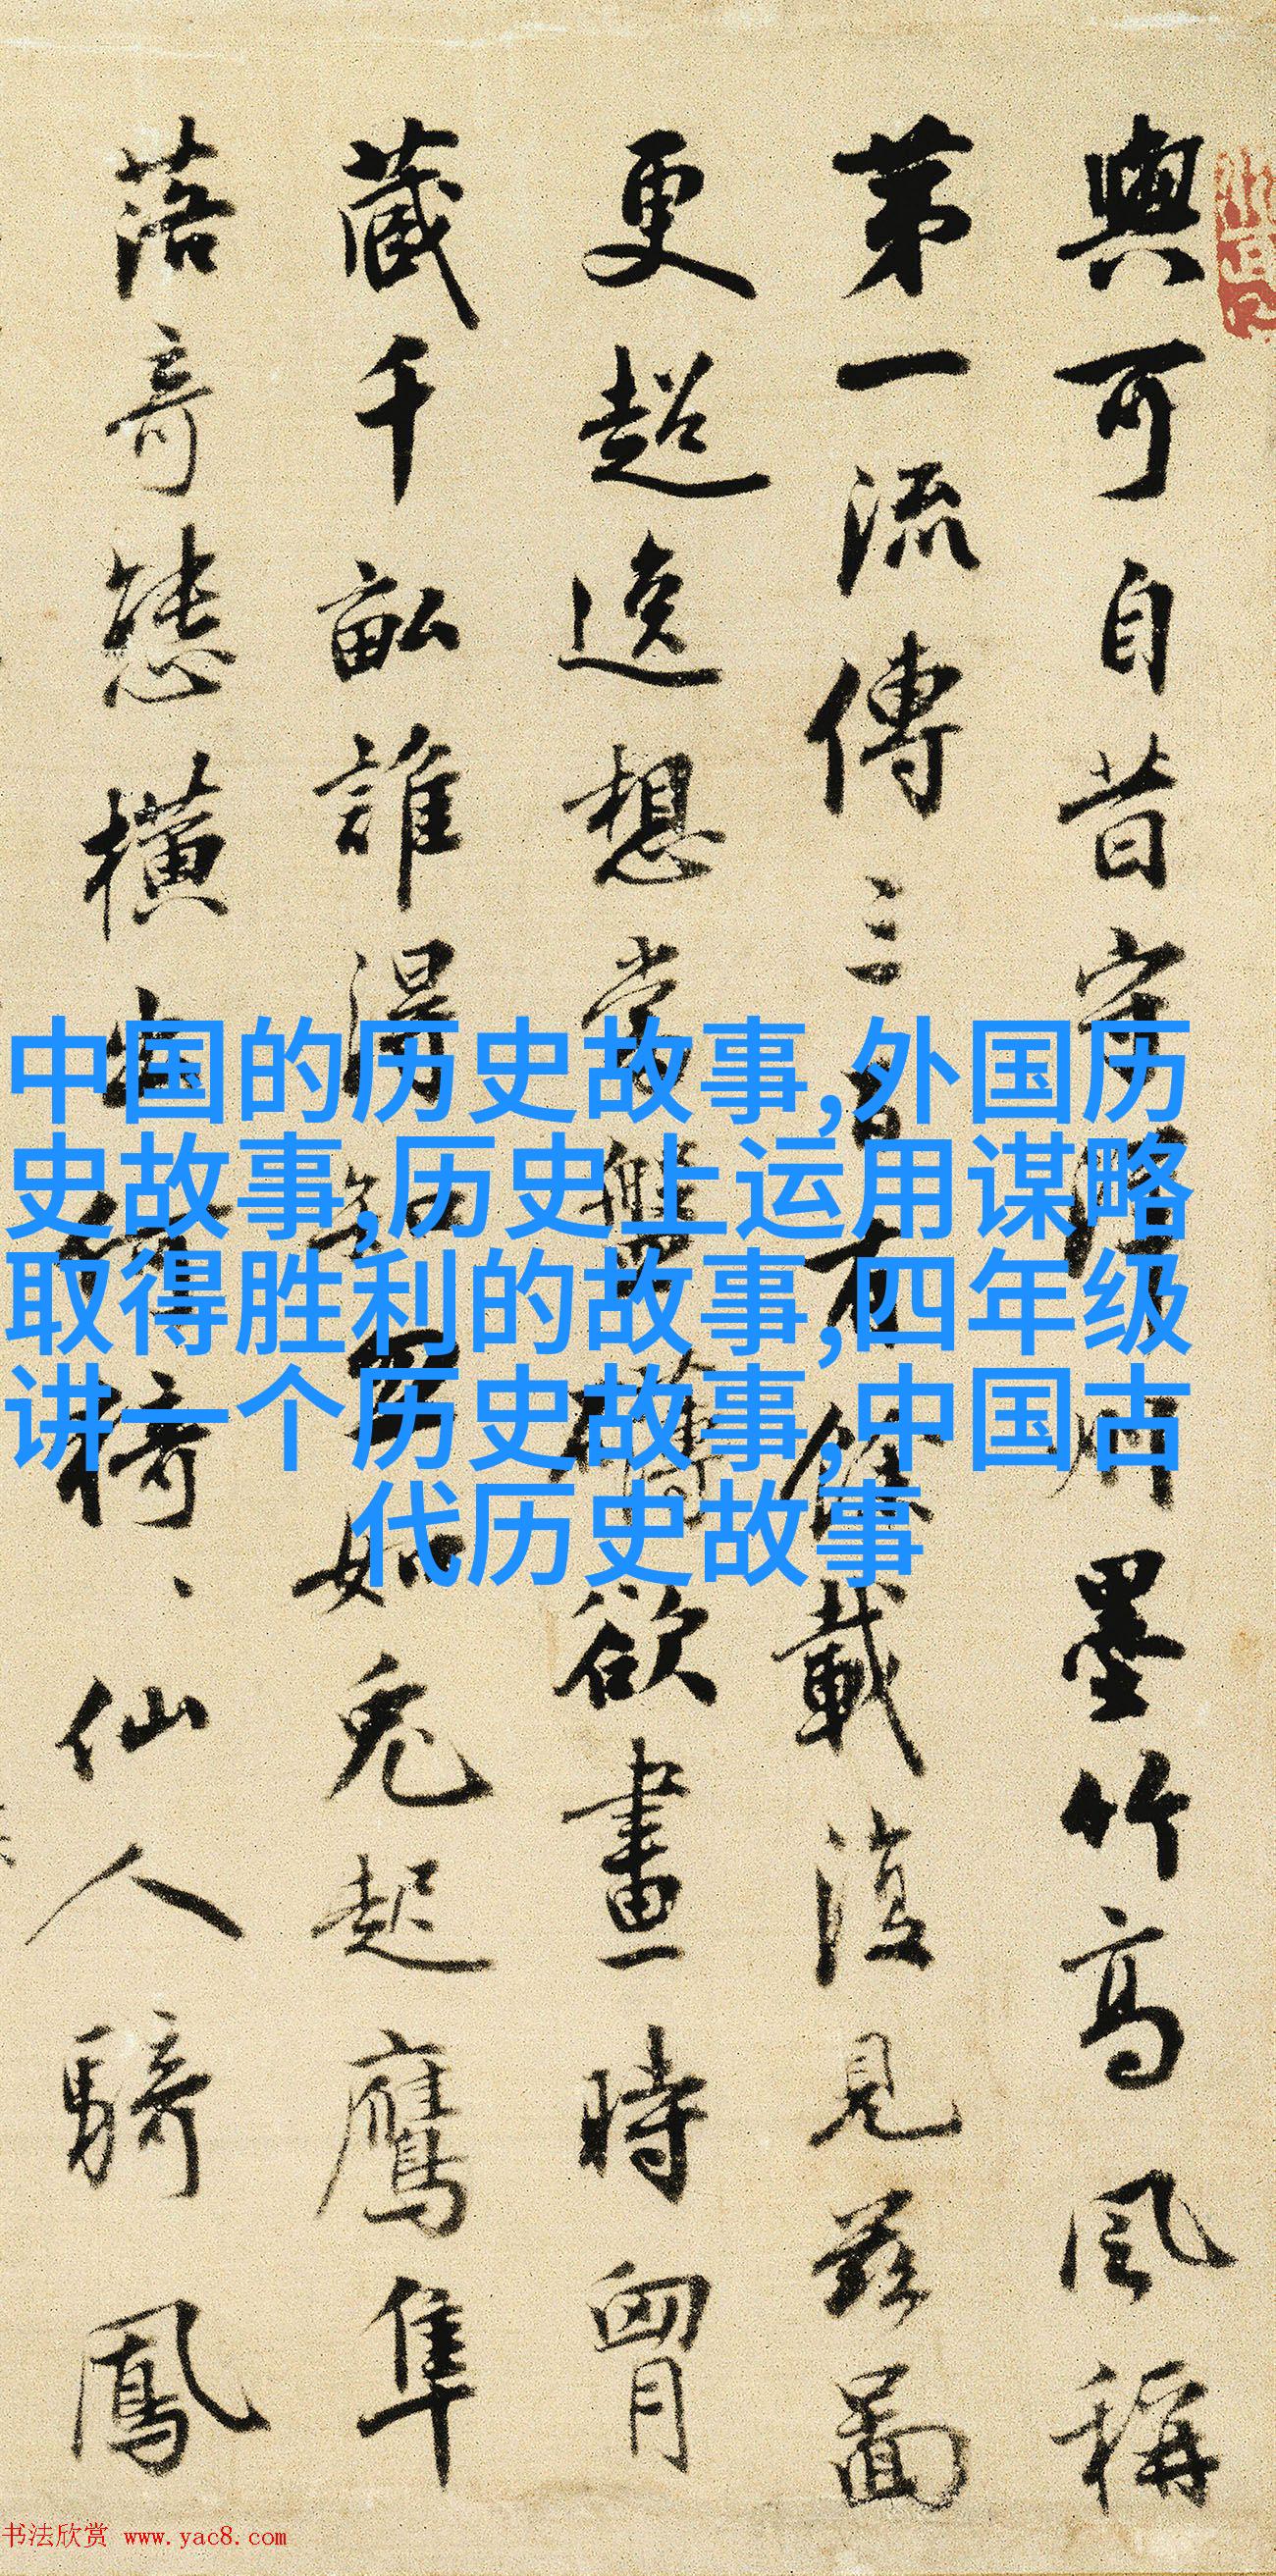 中国的历史故事,外国历
史故事,历史上运用谋略
取得胜利的故事,四年级
讲一个历史故事,中国古
代历史故事
與可自昔守湖州墨竹高風稱
第一流傳三百有餘載復見茲圖
更超逸想當盤礴欲畫時胷
藏千畝誰得如兔起鷹隼
落奇態橫出猗、仙人騎鳳
书法欣赏 www.yac8.com